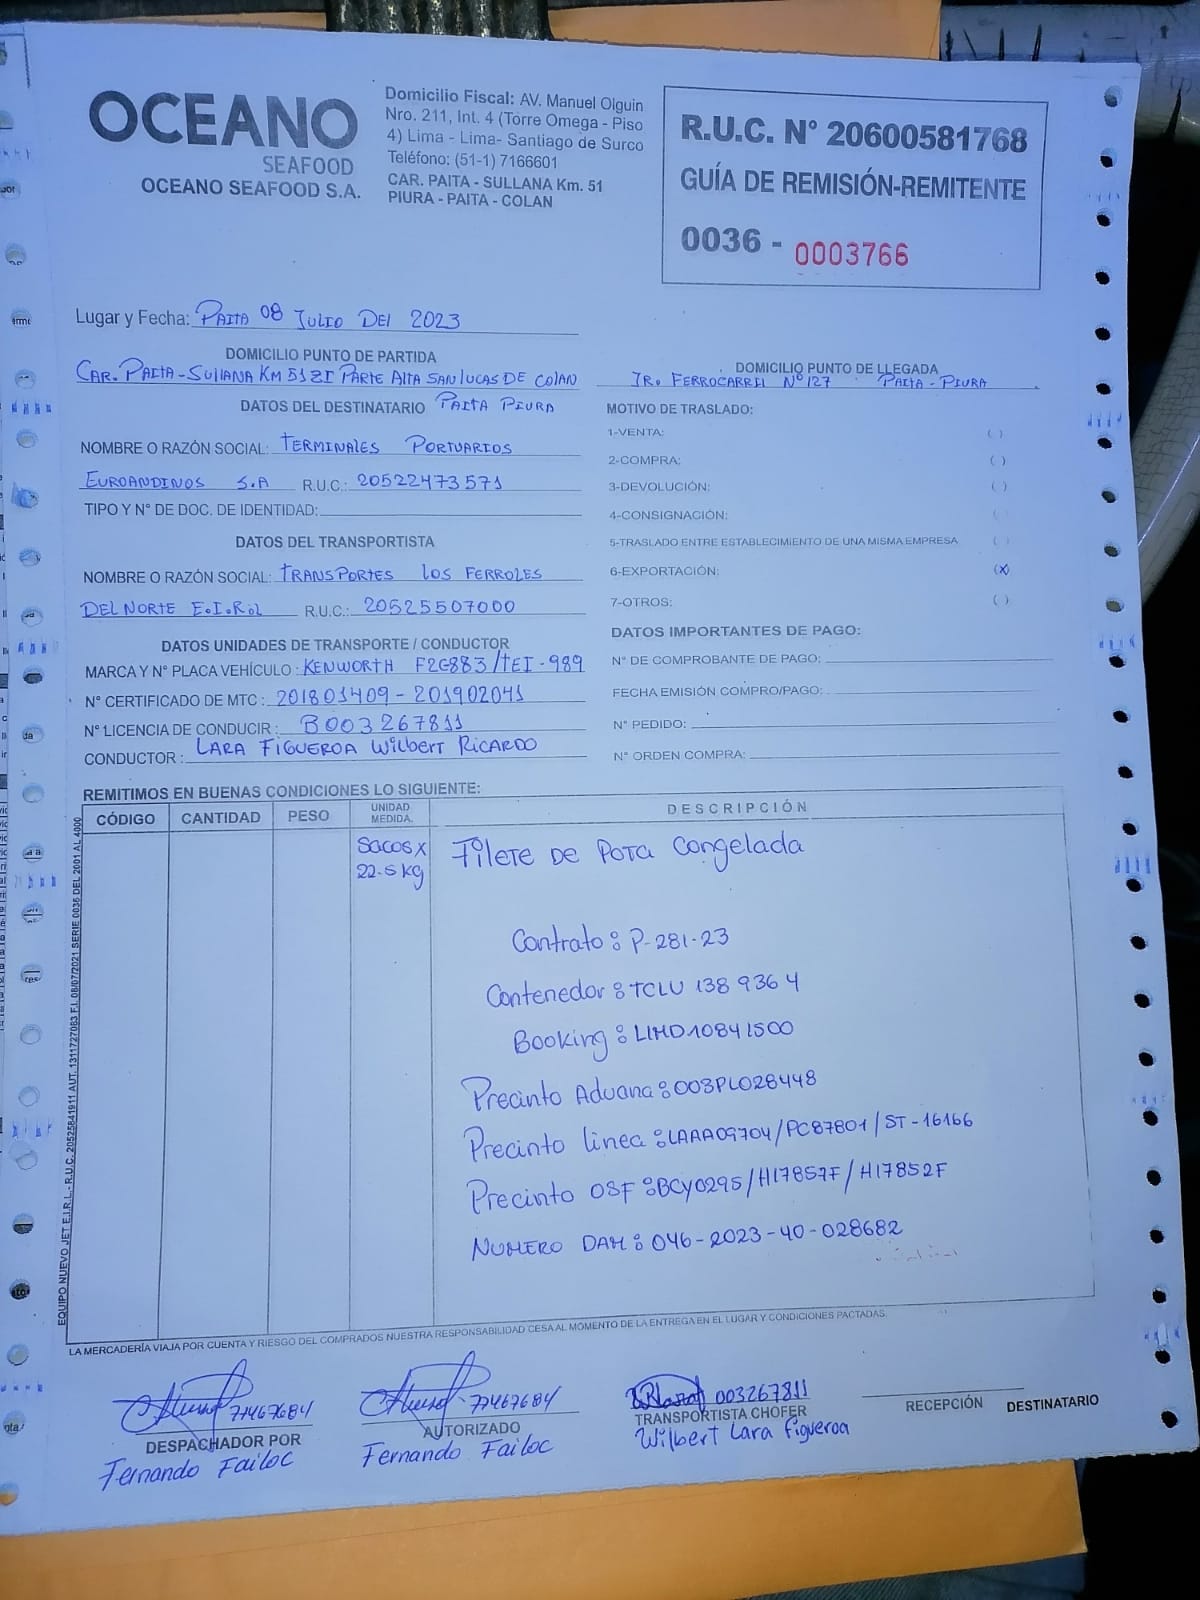 OCEANO
SEAFOOD
OCEANO SEAFOOD S.A.
Domicilio Fiscal: AV. Manuel Olguin
Nro. 211, Int. 4 (Torre Omega - Piso
4) Lima - Lima- Santiago de Surco
Teléfono: (51-1) 7166601
CAR. PAITA - SULLANA Km. 51
PIURA - PAITA - COLAN
R.U.C. N° 20600581768
GUÍA DE REMISIÓN-REMITENTE
0036 - 0003766
Lugar y Fecha: PAITA 08 JULIO DEL 2023
DOMICILIO PUNTO DE PARTIDA
CAR. PAITA-SULLANA KM 51 ZI PARTE ALTA SAN LUCAS DE COLAN
PAITA PIURA
DOMICILIO PUNTO DE LLEGADA
JR. FERROCARRIL N° 127 PAITA-PIURA
DATOS DEL DESTINATARIO
NOMBRE O RAZÓN SOCIAL: TERMINALES PORTUARIOS
EUROANDINOS S.A R.U.C.: 20522473571
TIPO Y N° DE DOC. DE IDENTIDAD:
DATOS DEL TRANSPORTISTA
NOMBRE O RAZÓN SOCIAL: TRANSPORTES LOS FERROLES
DEL NORTE E.I.R.L R.U.C.: 20525507000
DATOS UNIDADES DE TRANSPORTE / CONDUCTOR
MARCA Y N° PLACA VEHÍCULO: KENWORTH F2G883/TEI-989
N° CERTIFICADO DE MTC: 201801409-201902041
N° LICENCIA DE CONDUCIR: B003267811
CONDUCTOR: LARA FIGUEROA WILBERT RICARDO
MOTIVO DE TRASLADO:
1-VENTA: ( )
2-COMPRA: ( )
3-DEVOLUCIÓN: ( )
4-CONSIGNACIÓN: ( )
5-TRASLADO ENTRE ESTABLECIMIENTO DE UNA MISMA EMPRESA ( )
6-EXPORTACIÓN: (X)
7-OTROS: ( )
DATOS IMPORTANTES DE PAGO:
N° DE COMPROBANTE DE PAGO:
FECHA EMISIÓN COMPRO/PAGO:
N° PEDIDO:
N° ORDEN COMPRA:
REMITIMOS EN BUENAS CONDICIONES LO SIGUIENTE:
CÓDIGO CANTIDAD PESO UNIDAD MEDIDA. DESCRIPCIÓN
Sacos x
22.5 kg
Filete DE POTA Congelada
Contrato: P-281-23
Contenedor: TCLU 138 936 4
Booking: LIMD10841500
Precinto Aduana: 003PL028448
Precinto linea: LAAA09704/PC87801/ST-16166
Precinto OSF: BCY0295/H17857F/H17852F
NUMERO DAM: 046-2023-40-028682
EQUIPO NUEVO JET E.I.R.L. - R.U.C. 20525841911 AUT. 1311727083 F.I. 08/07/2021 SERIE 0036 DEL 2001 AL 4000
LA MERCADERÍA VIAJA POR CUENTA Y RIESGO DEL COMPRADOS NUESTRA RESPONSABILIDAD CESA AL MOMENTO DE LA ENTREGA EN EL LUGAR Y CONDICIONES PACTADAS.
77467684
DESPACHADOR POR
Fernando Failoc
77467684
AUTORIZADO
Fernando Failoc
003267811
TRANSPORTISTA CHOFER
Wilbert Lara Figueroa
RECEPCIÓN DESTINATARIO